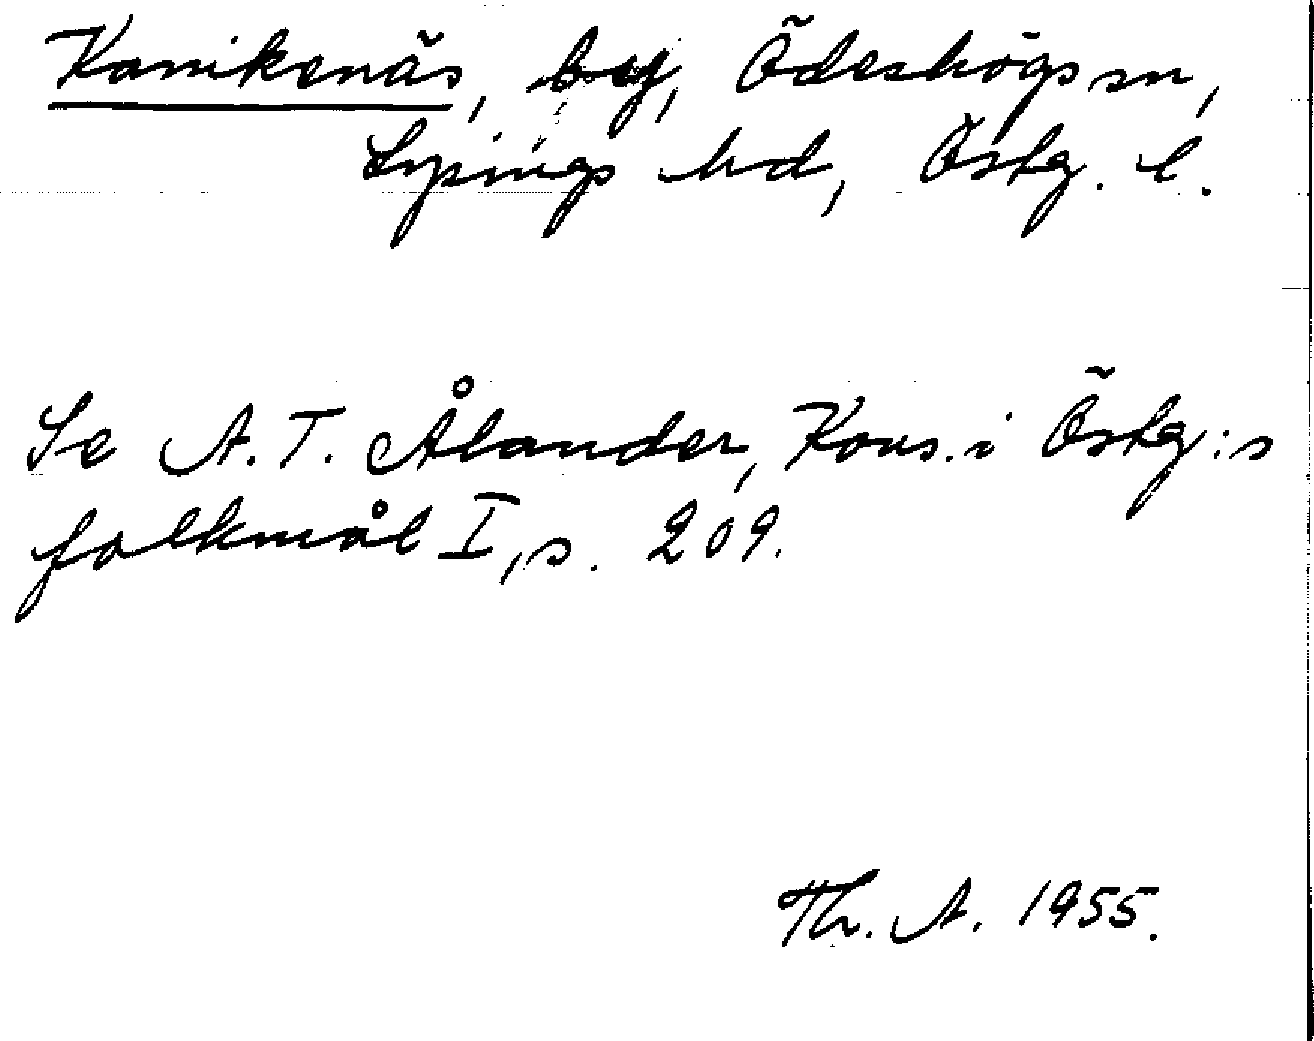 Kanikenäs, by, Ödeshögs sn,
Lysings hd, Östg. l.
Se A. T. Ålander, Kons. i Östg:s
folkmål I, s. 209.
Th. A. 1955.